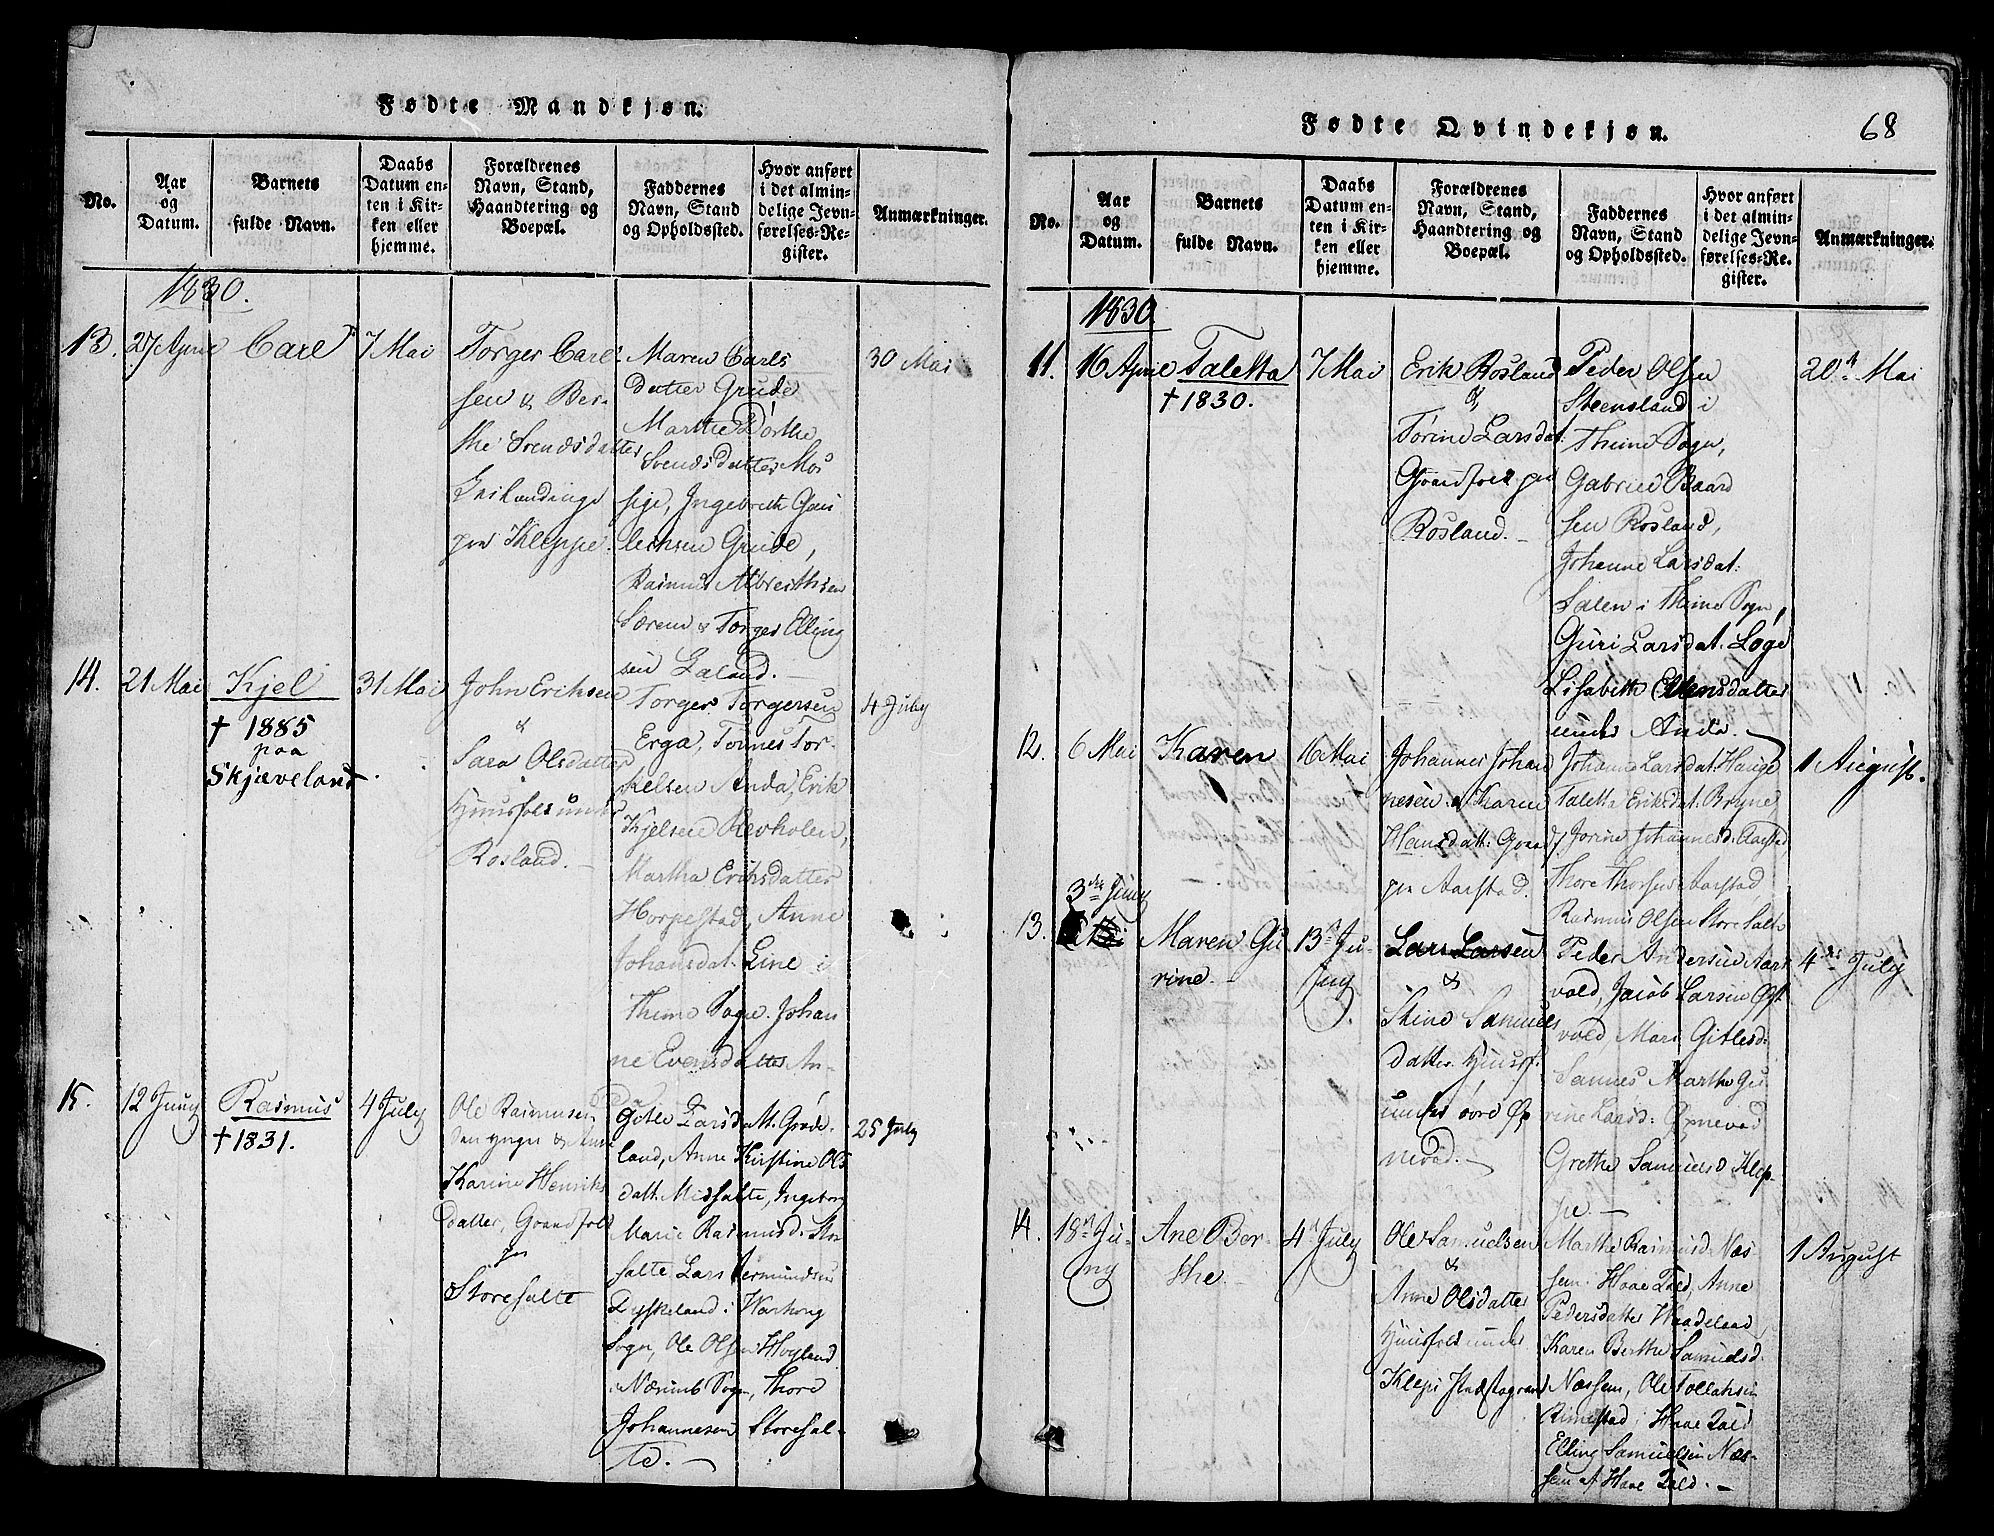 Fødte Mandkjøn.
No.
Aar og Datum.
Barnets fulde Navn.
Daabs Datum enten i Kirken eller hjemme.
Forældrenes Navn, Stand, Haandtering og Boepæl.
Faddernes Navn, Stand og Opholdssted.
Hvor anført i det almindelige Jevnførelses-Register.
Anmærkninger.
1830.
13.
27 April
Carl
7 Mai
Torger Carl
sen & Ber-
the Svendsdatter
paa Kleppe.
Maren Carls
datter Grude
Marthe Dorthe
Svendsdatter Mos
sige, Ingebreth
Grude,
Rasmus Albreithsen
Særem & Torger Elling
sen Laland. —
30 Mai
14.
21 Mai
Kjel
† 1885
paa
Skjæveland
31 Mai
John Eriksen
&
Sara Olsdatter
Huusfolk under
Rosland. —
Torger Torgersen
Erga, Tonnes Tor-
kelsen Anda, Erik
Kjelsen Revholen,
Martha Eriksdatter
Horpestad, Anne
Johansdat. Line i
Thime Sogn. Johan
ne Evensdatter An-
da.
4 July
15.
12 Juny
Rasmus
† 1831.
4 July
Ole Rasmusen
den yngre & Ane
Karine Henriks
Datter, Gaardfolk
paa
Storesalte
Gitle Larsdatt. Grøde-
land, Anne Kirstine Ols
datt. Midsalte, Ingeborg
Marie Rasmusd. Stor
salte Lars Germundsen
Dyskeland i Warhoug
Sogn, Ole Olsen Høyland
i Nærims Sogn, Thore
Johannesen Storesal-
te. —
25 July
Fødte Qvindekjøn.
68
No.
Aar og Datum.
Barnets fulde Navn.
Daabs Datum enten i Kirken eller hjemme.
Forældrenes Navn, Stand, Haandtering og Boepæl.
Faddernes Navn, Stand og Opholdssted.
Hvor anført i det almindelige Jevnførelses-Register.
Anmærkninger.
1830
11.
16 April
Taletta
† 1830.
7 Mai
Erik Rosland
&
Torine Larsdat:
Gaardfolk paa
Rosland. —
Peder Olsen
Steensland i
Thime Sogn,
Gabriel Baard
sen Rosland,
Johanne Larsdat:
Salen i Thime Sogn,
Guri Larsdat. Loge
Lisabeth Ellensdatter
under Anda. —
20de Mai
12.
6 Mai
Karen
16 Mai
Johannes Johan
nesen & Karen
Hansdatt: Gaardf.
paa Aarstad.
Johanne Larsdat. Hauge
Taletta Eriksdat. Bryne
Jorine Johannesd. Aarstad,
Thore Thorsen Aarstad,
Rasmus Olsen Store Salte
1 August.
13.
3die Juny
Maren Gu
rine. —
13de Ju-
ny.
Lars Larsen
&
Stine Samuels
datter Huusf.
under øvre Øx
nevad. —
Peder Andersen Aars
vold, Jacob Larsen Øxt
vold, Mari Gitlesd.
Sannes Marthe Gu
rine Larsd: Øxnevad
Grethe Samuelsd Klep-
pe. —
4de July
14.
18de Ju-
ny
Ane Ber-
the. —
4de July
Ole Samuelsen
&
Anne Olsdatter
Huusfolk under
Klepi Præstegaard
Marthe Rasmusd Næs-
sem. Haae Tald, Anne
Pedersdatter Haadeland,
Karen Berthe Samuelsd.
Næssem, Ole Tollaksen
Rimestad Haae Tald
Elling Samuelsen Næs-
sem af Haae Tald. —
1 August